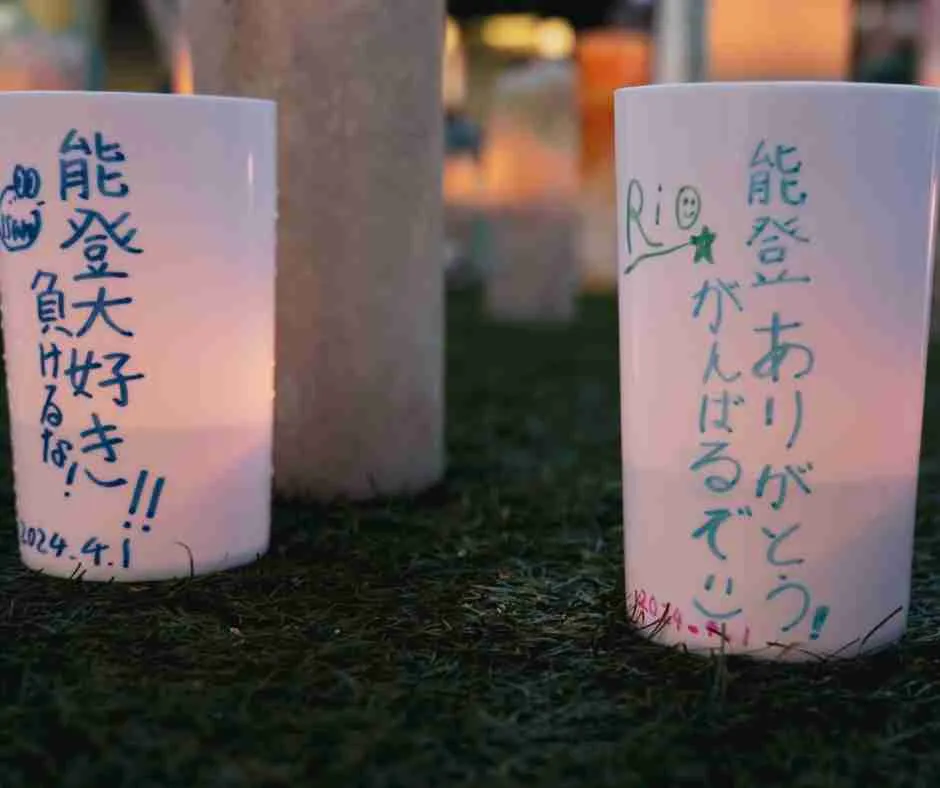 能登大好き!!
負けるな!
2024.4.1
能登ありがとう!
がんばるぞ
Rio